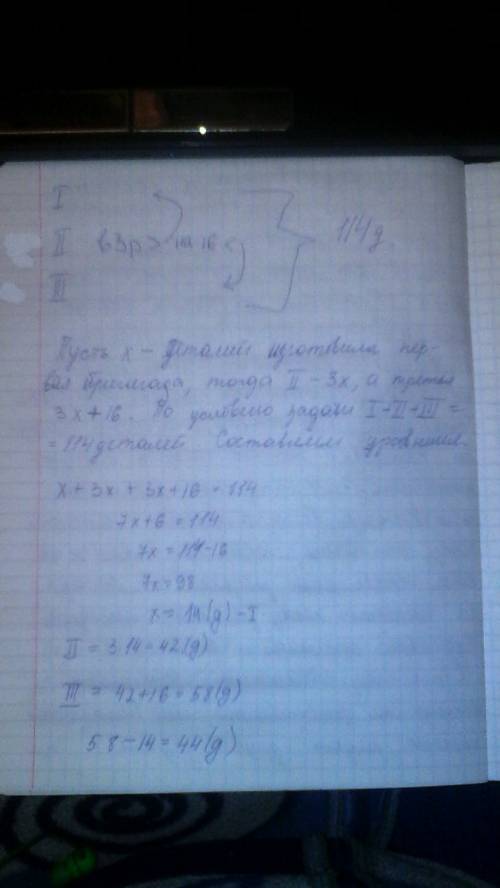 I
II в 3р > на 16 <
III
114 д.
Пусть x – деталей изготовила пер-
вая бригада, тогда II – 3x, а третья
3x+16. По условию задачи I+II+III =
= 114 деталей. Составляем уровнения.
x + 3x + 3x + 16 = 114
7x+6 = 114
7x = 114-16
7x = 98
x = 14 (д) – I
II = 3·14 = 42 (д)
III = 42 + 16 = 58 (д)
58 – 14 = 44 (д)